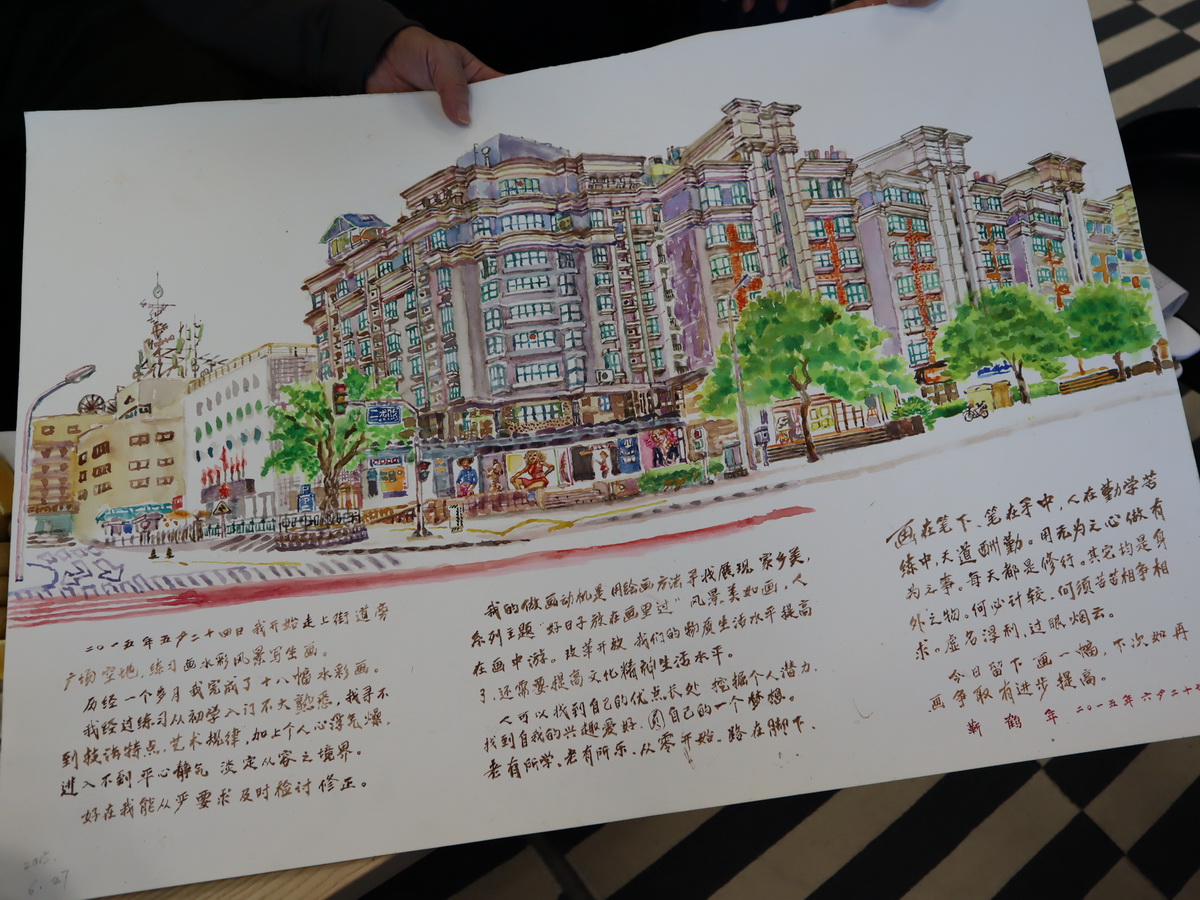 二〇一五年五月二十四日我开始走上街道旁
广场空地,练习画水彩风景写生画。
历经一个多月我完成了十八幅水彩画。
我经过练习从初学入门不大熟悉,我寻不
到技法特点.艺术规律,加上个人心浮气燥,
进入不到平心静气 淡定从容之境界。
好在我能从严要求及时检讨修正。
我的做画动机是用绘画方法寻找展现家乡美,
系列主题“好日子放在画里过”风景美如画,人
在画中游。改革开放 我们的物质生活水平提高
了.还需要提高文化精神生活水平。
人可以找到自己的优点长处 挖掘个人潜力.
找到自我的兴趣爱好.圆自己的一个梦想。
老有所学、老有所乐.从零开始、路在脚下、
画在笔下、笔在手中,人在勤学苦
练中,天道酬勤。用无为之心做有
为之事。每天都是修行。其它均是身
外之物。何必计较,何须苦苦相争相
求。虚名浮利,过眼烟云。
今日留下画一幅,下次如再
画争取有进步提高。
靳 鹤 年 二〇一五年 六月二十
2015.
6.27